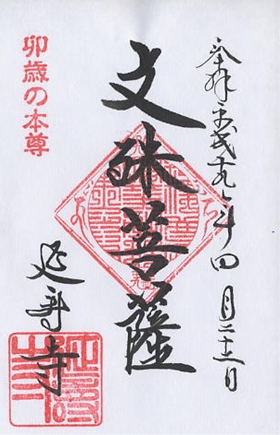 奉拝 平成十九年四月二十二日
文殊菩薩
卯歳の本尊
延寿寺